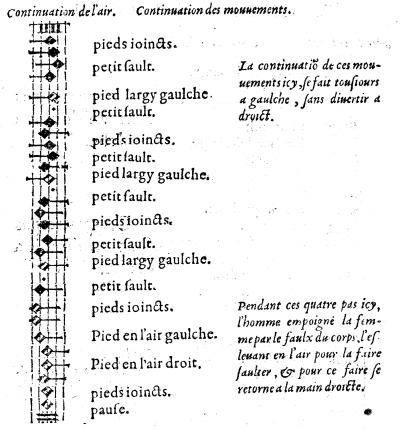 Continuation de l'air. Continuation des mouuements.
pieds ioincts.
petit sault.
pied largy gaulche.
petit sault.
pieds ioincts.
petit sault.
pied largy gaulche.
petit sault.
pieds ioincts.
petit sault.
pied largy gaulche.
petit sault.
pieds ioincts.
Pied en l'air gaulche.
Pied en l'air droit.
pieds ioincts.
pause.
La continuatiõ de ces mou-
uements icy, se fait tousiours
a gaulche, sans diuertir a
droict.
Pendant ces quatre pas icy,
l'homme empoigne la fem-
me par le faulx du corps, l'es-
leuant en l'air pour la faire
saulter, & pour ce faire se
retorne a la main droicte.